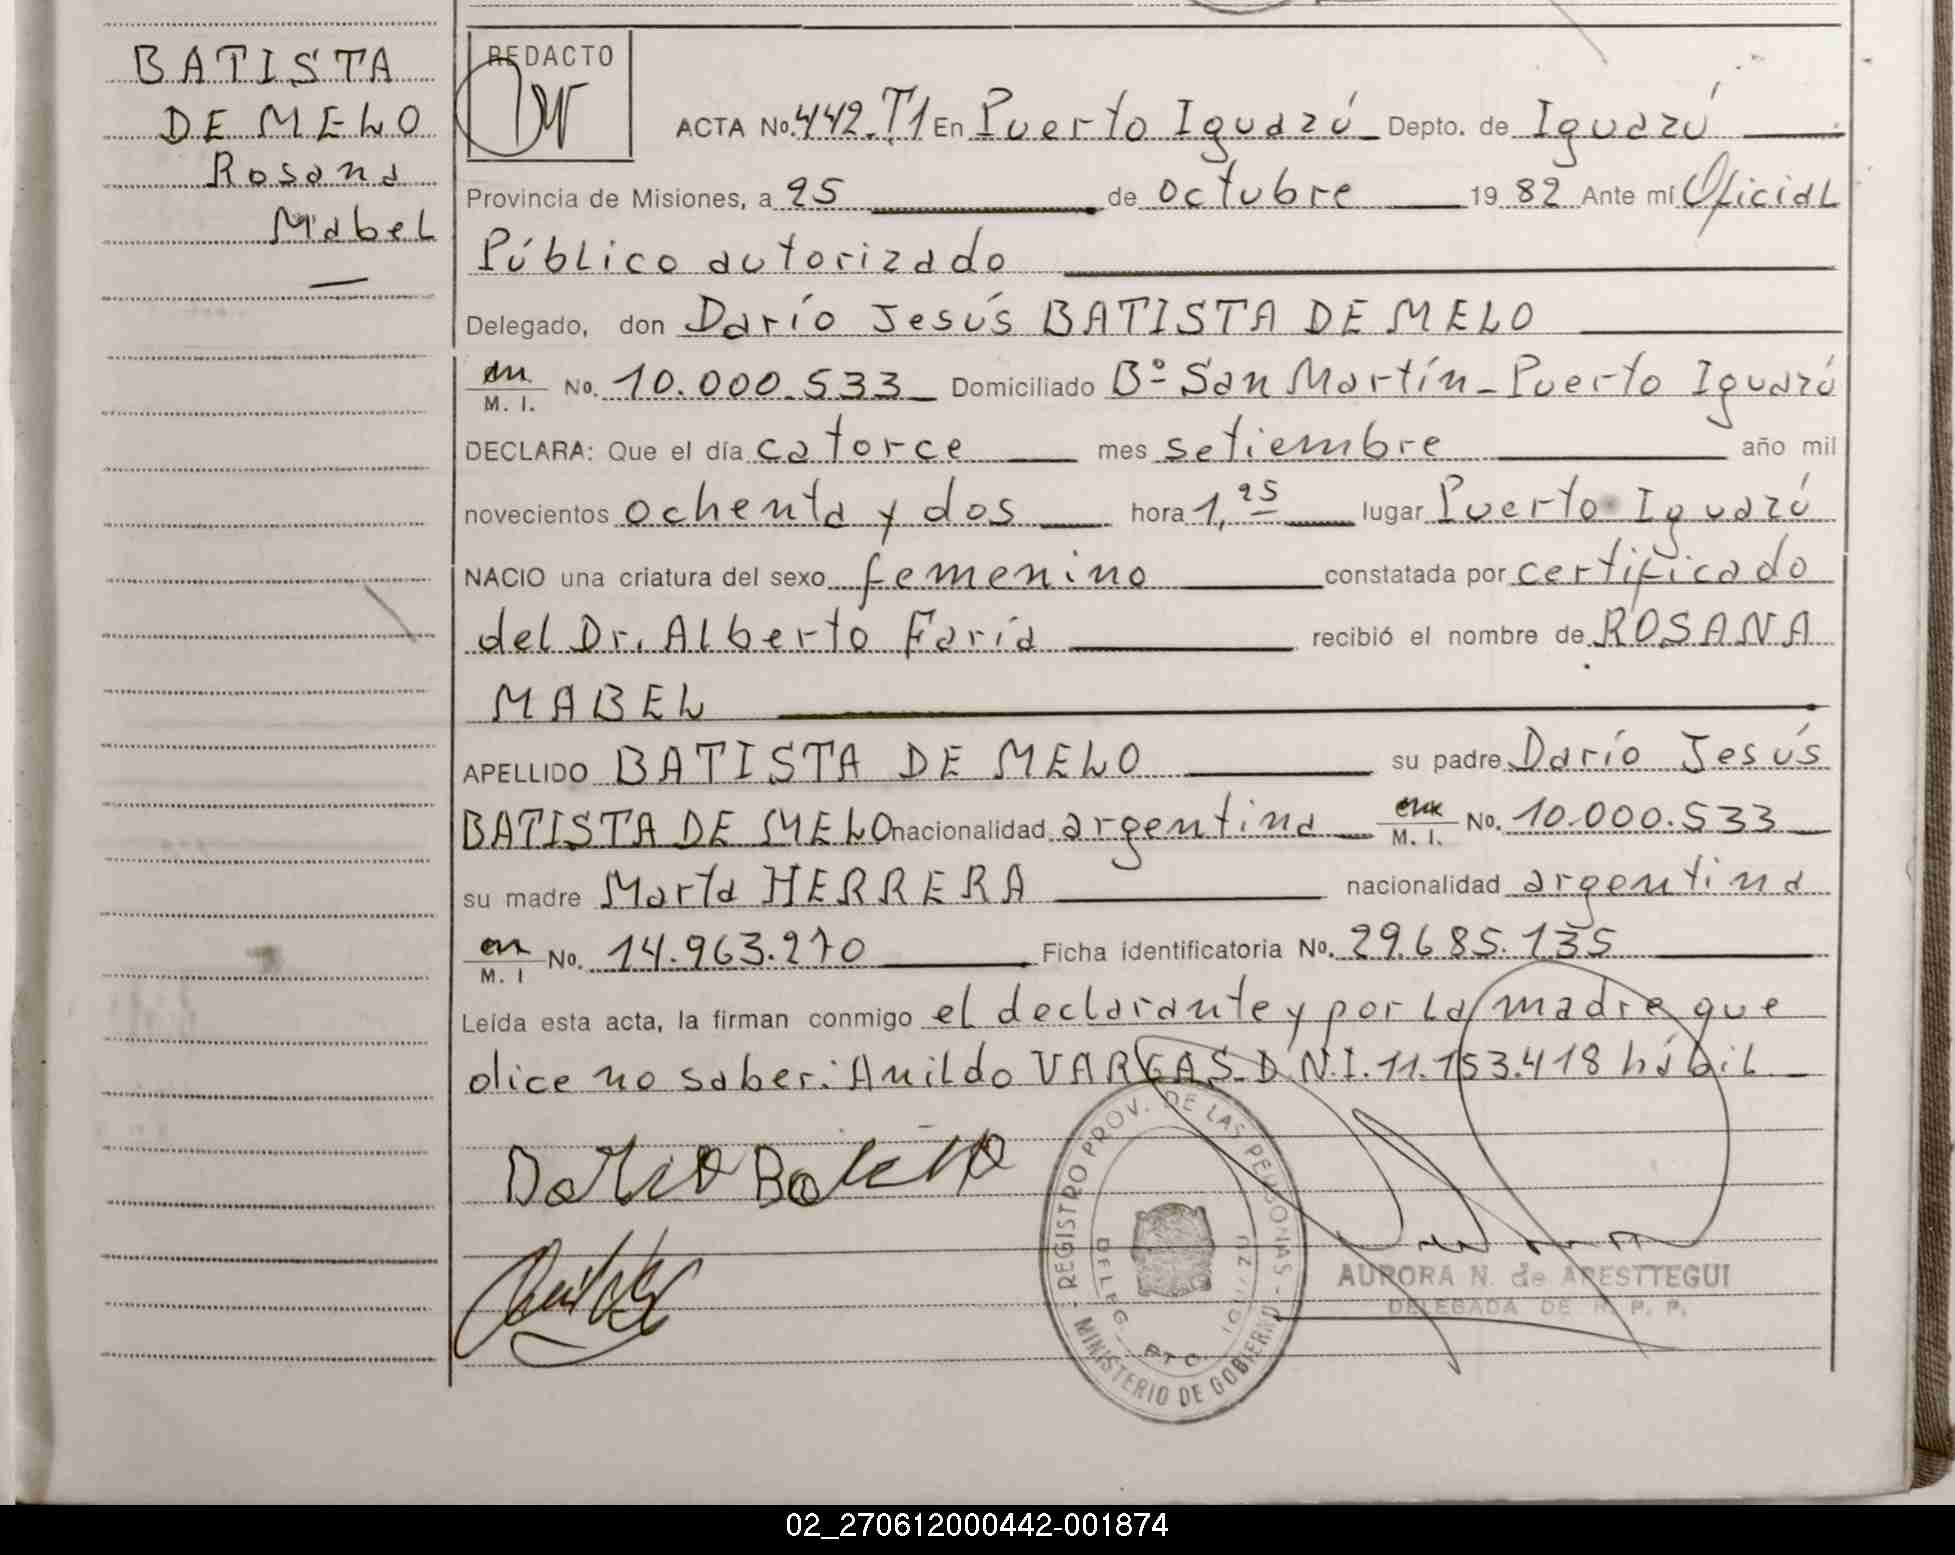 BATISTA
DE MELO
Rosana
Mabel
REDACTO
ACTA No. 442.T1 En Puerto Iguazú Depto. de Iguazú
Provincia de Misiones, a 25 de octubre 19 82 Ante mí Oficial
Público autorizado
Delegado, don Darío Jesús BATISTA DE MELO
M. I. No. 10.000.533 Domiciliado Bº San Martín - Puerto Iguazú
DECLARA: Que el día catorce mes setiembre año mil
novecientos ochenta y dos hora 1,25 lugar Puerto Iguazú
NACIO una criatura del sexo femenino constatada por certificado
del Dr. Alberto Faría recibió el nombre de ROSANA
MABEL
APELLIDO BATISTA DE MELO su padre Darío Jesús
BATISTA DE MELO nacionalidad argentina M. I. No. 10.000.533
su madre Marta HERRERA nacionalidad argentina
M. I No. 14.963.270 Ficha identificatoria No. 29.685.135
Leída esta acta, la firman conmigo el declarante y por la madre que
dice no saber: Anildo VARGAS D.N.I. 11.153.418 hábil
REGISTRO PROV. DE LAS PERSONAS - MINISTERIO DE GOBIERNO
DELEG. PTO.
AURORA N. de ARESTTEGUI
DELEGADA DE R. P. P.
02_270612000442-001874